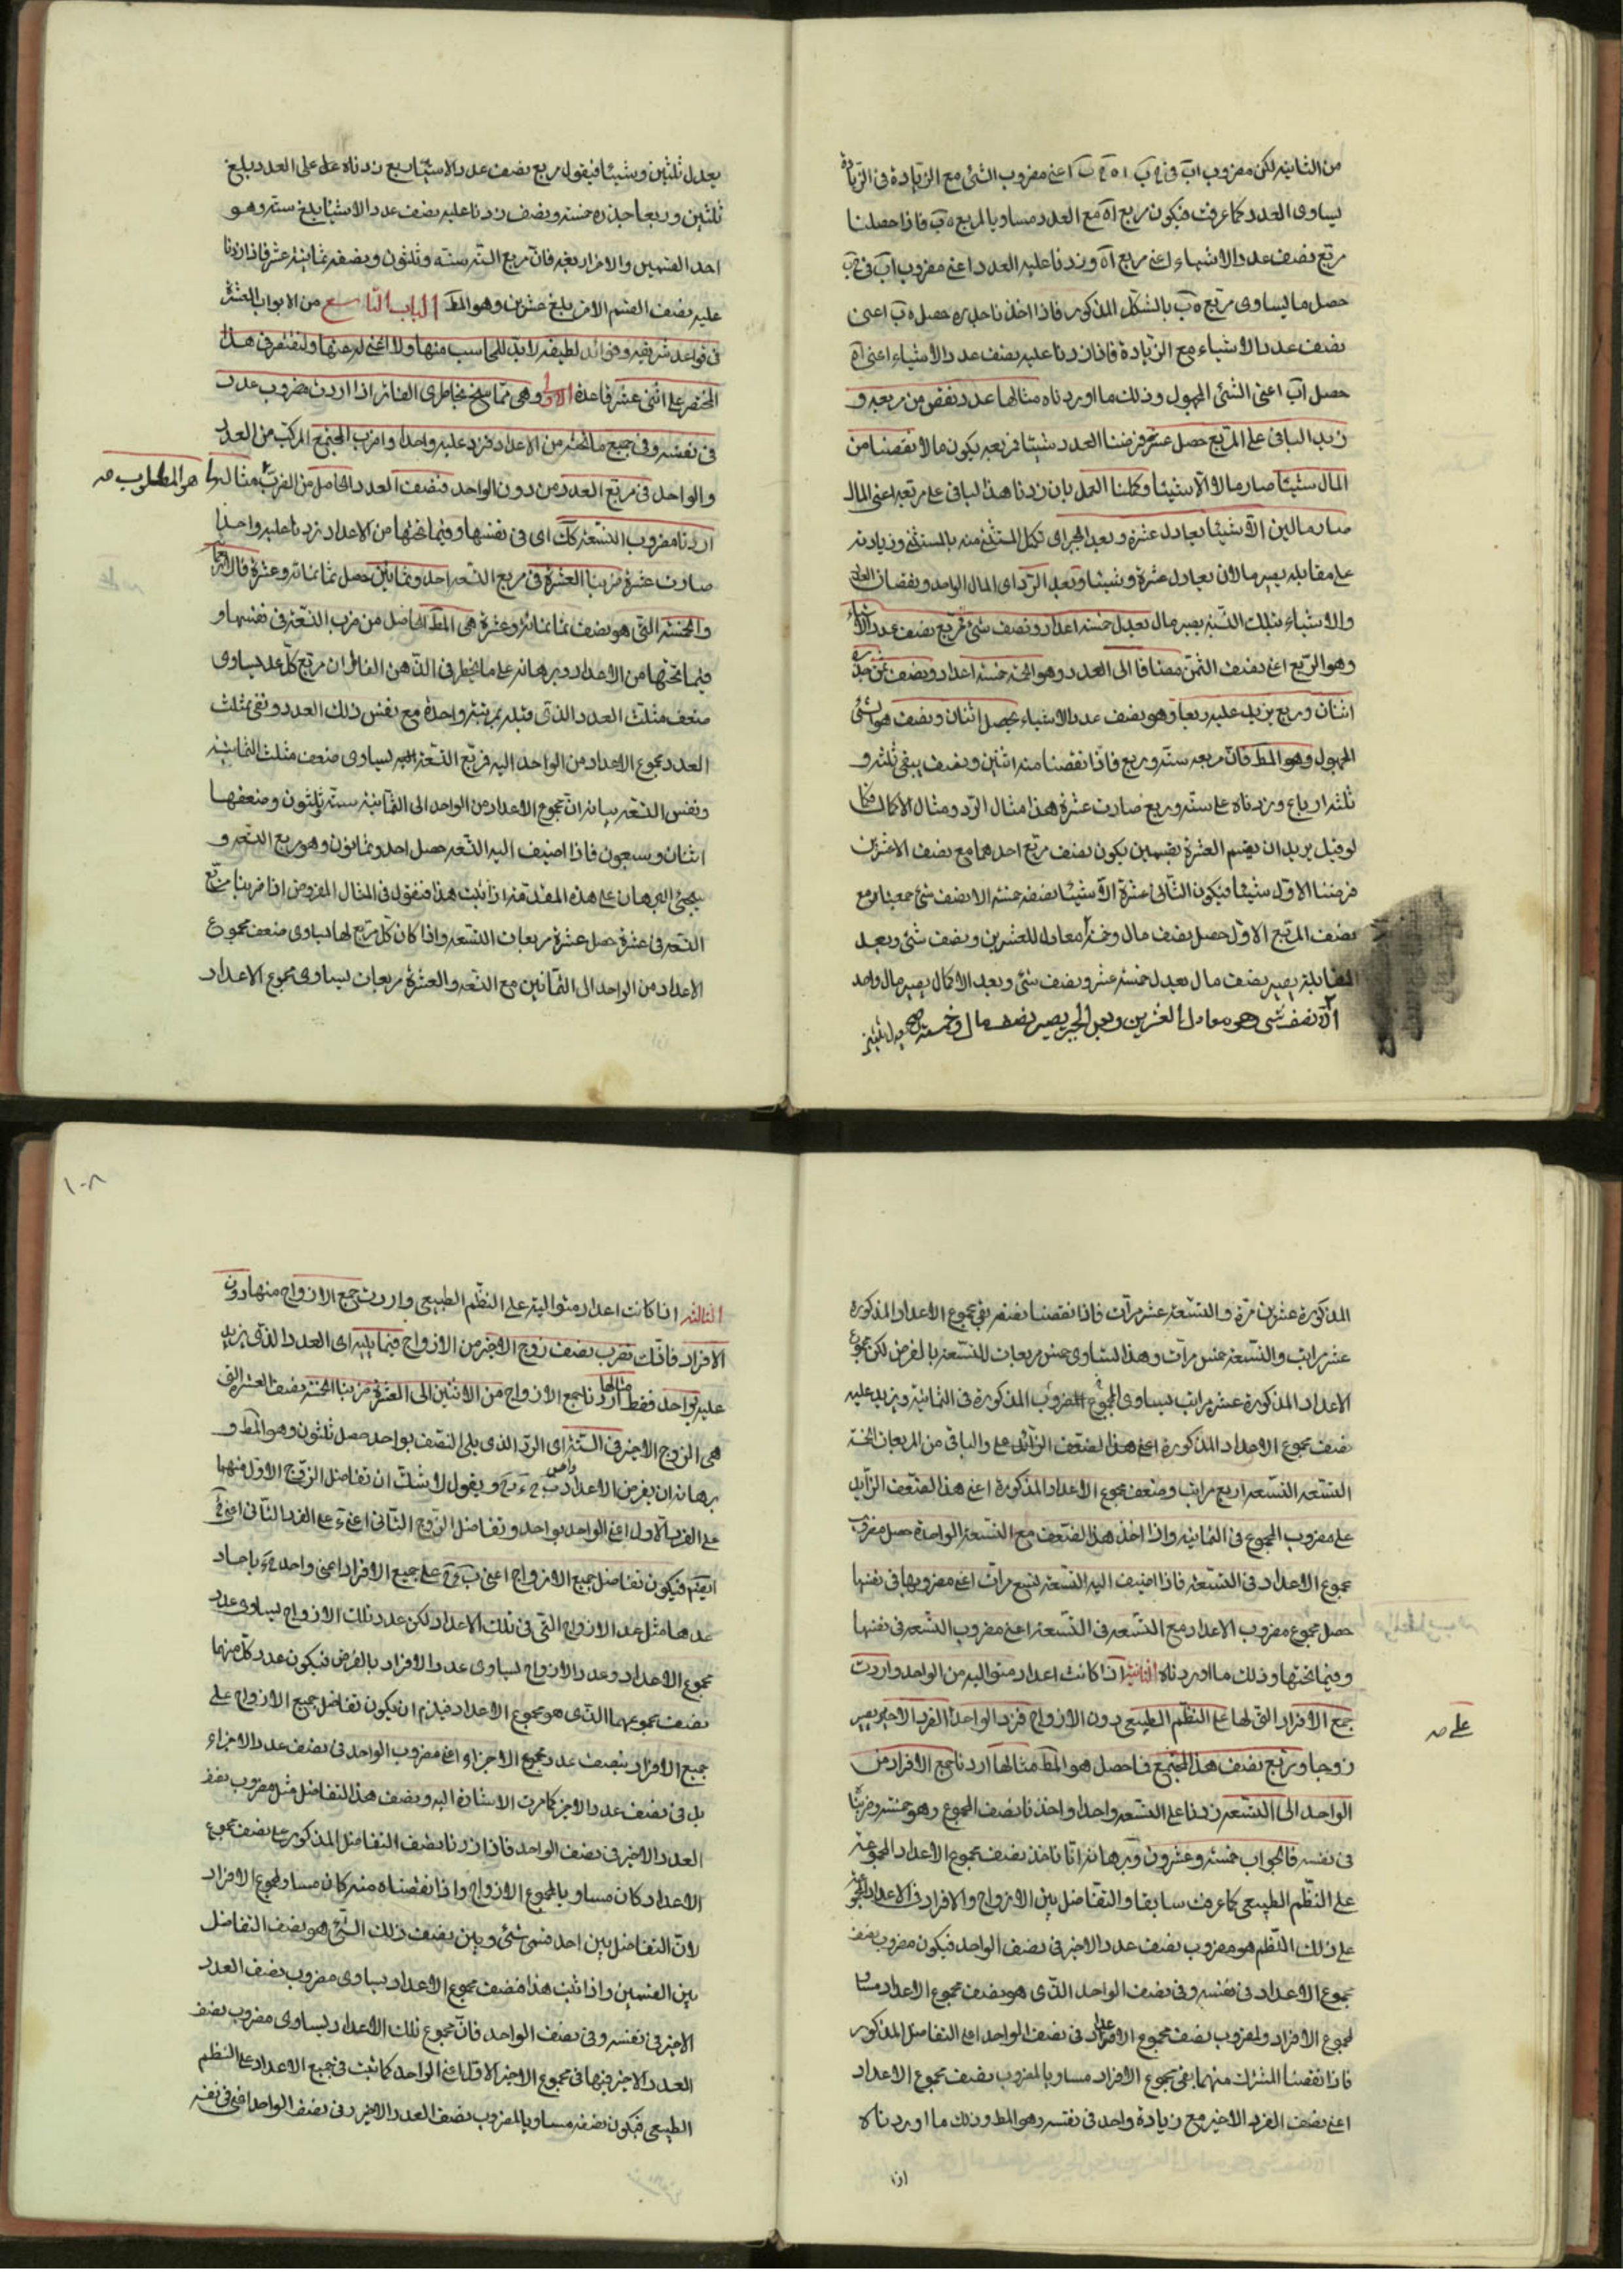 من الثانیه لکن مضروب اب فی ح ب اه ح ب اعنی مضروب الشئ مع الزیادة فی الزیادة
یساوی العدد کما عرفت فیکون مربع اه مع العدد مساویا لمربع ه ب فاذا حصلنا
مربع نصف عدد الاشیاء اعنی مربع اه وزدنا علیه العدد اعنی مضروب اب فی ح ب
حصل ما یساوی مربع ه ب بالشکل المذکور فاذا اخذنا جذره حصل ه ب اعنی
نصف عدد الاشیاء مع الزیادة فاذا زدنا علیه نصف عدد الاشیاء اعنی اه
حصل اب اعنی الشئ المجهول وذلک ما اوردناه مثالها عدد نقص من مربعه و
زید الباقی علی المربع حصل عشرة فرضنا العدد شیئا فمربعه یکون مالا نقصنا من
المال شیئا صار مالا الا شیئا وکملنا العمل بان زدنا هذا الباقی علی مربعه اعنی المال
صار مالین الا شیئا یعادل عشرة وبعد الجبر ای تکمل المستثنی منه بالمستثنی وزیادته
علی مقابله یصیر مالان یعادل عشرة وشیئا وبعد الرد ای المال الواحد ونقصان العدد
والاشیاء بتلک النسبة یصیر مال یعدل خمسة اعداد ونصف شئ فمربع نصف عدد الاشیاء
وهو الربع اعنی نصف الثمن مضافا الی العدد وهو الخمسة خمسة اعداد ونصف ثمن جذره
اثنان وربع یزید علیه ربعا وهو نصف عدد الاشیاء یحصل اثنان ونصف هو الشئ
المجهول وهو المط فان مربعه ستة وربع فاذا نقصنا منه اثنین ونصف یبقی ثلثة و
ثلثة ارباع وزدناه علی ستة وربع صارت عشرة هذا مثال الرد ومثال الاکمال کما
لو قیل یرید ان یقسم العشرة بقسمین یکون نصف مربع احدهما مع نصف الاخر عشرین
فرضنا الاول شیئا فیکون الثانی عشرة الا شیئا نصفه خمسة الا نصف شئ جمعناه مع
نصف المربع الاول حصل نصف مال وخمسة معادلة للعشرین ونصف شئ وبعد
المقابلة یصیر نصف مال یعدل خمسة عشر ونصف شئ وبعد الاکمال یصیر مال واحد
الا نصف شئ وهو معادل العشرین وبعد الجبر یصیر نصف مال وخمسة
یعدل ثلثین وشیئا فیقول مربع نصف عدد الاشیاء ربع زدناه علی العدد بلغ
ثلثین وربعا جذره خمسة ونصف زدنا علیه نصف عدد الاشیاء بلغ ستة وهو
احد القسمین والاخر اربعة فان مربع الستة ستة وثلثون ونصفه ثمانیة عشر فاذا زدنا
علیه نصف القسم الاخر بلغ عشرین وهو المط الباب التاسع من الابواب العشرة
فی قواعد شریفة وفوائد لطیفة لابد للمحاسب منها ولا غنی له عنها ولنقتصر فی هذا
المختصر علی اثنی عشر قاعدة الاولی وهی مما سنح بخاطری الفاتر اذا اردت مضروب عدد
فی نفسه وفی جمیع ما تحته من الاعداد فزد علیه واحدا واضرب المجتمع المرکب من العدد
والواحد فی مربع العدد من دون الواحد فنصف العدد الحاصل من الضرب هو المطلوب صح مثالها
اردنا مضروب التسعة کک ای فی نفسها وفیما تحتها من الاعداد زدنا علیه واحدا
صارت عشرة ضربنا العشرة فی مربع التسعة احد وثمانین حصل ثمانمائة وعشرة فالاربعمائة
والخمسة التی هو نصف ثمانمائة وعشرة هی المط الحاصل من ضرب التسعة فی نفسها و
فیما تحتها من الاعداد وبرهانه علی ما یخطر فی الذهن الفاتر ان مربع کل عدد یساوی
ضعف مثلث العدد الذی قبله بمرتبة واحدة مع نفس ذلک العدد ونعنی بمثلث
العدد مجموع الاعداد من الواحد الیه فمربع التسعة یساوی ضعف مثلث الثمانیة
ونفس التسعة بیانه ان مجموع الاعداد من الواحد الی الثمانیة ستة وثلثون وضعفها
اثنان وسبعون فاذا اضیف الیه التسعة حصل احد وثمانون وهو مربع التسعة و
سیجئ البرهان علی هذه المقدمة اذا ثبت هذا فنقول فی المثال المفروض اذا ضربنا مربع
التسعة فی عشرة حصل عشرة مربعات التسعة واذا کان کل مربع لها یساوی ضعف مجموع
الاعداد من الواحد الی الثمانین مع التسعة والعشرة مربعات یساوی مجموع الاعداد
المذکورة عشرین مرة والتسعة عشر مرات فاذا نقصنا نصفه بقی مجموع الاعداد المذکورة
عشر مرات والتسعة خمس مرات وهذا یساوی خمس مربعات للتسعة بالفرض لکن مجموع
الاعداد المذکورة عشر مراتب یساوی المجموع المضروب المذکورة فی الثمانیة ویزید علیه
ضعف مجموع الاعداد المذکورة اعنی هذا الضعف الزائد علی والباقی من المربعات الخمسة
التسعة التسعة اربع مراتب وضعف مجموع الاعداد المذکورة اعنی هذا الضعف الزاید
علی مضروب المجموع فی الثمانیه واذا اخذ هذا الضعف مع التسعة الواحدة حصل مضروب
مجموع الاعداد فی التسعة فاذا اضیف الیه التسعة تسع مرات اعنی مضروبها فی نفسها
حصل مجموع مضروب الاعداد مع التسعة فی التسعة اعنی مضروب التسعة فی نفسها
وفیما تحتها وذلک ما اوردناه الثانیة اذا کانت اعداد متوالیة من الواحد واردت
جمع الافراد التی لها علی النظم الطبیعی دون الازواج فزد الواحد علی الفرد الاخیر یصیر
علی صح
زوجا وربع نصف هذا المجتمع فما حصل هو المط مثالها اردنا جمع الافراد من
الواحد الی التسعة زدنا علی التسعة واحدا واخذنا نصف المجموع وهو خمسة وضربنا
فی نفسه فالجواب خمسة وعشرون وبرهانه انا ناخذ نصف مجموع الاعداد المجموعة
علی النظم الطبیعی کما عرفت سابقا والتفاضل بین الازواج والافراد فی الاعداد المجموعة
علی ذلک النظم هو مضروب نصف عدد الاخیر فی نصف الواحد فیکون مضروب نصف
مجموع الاعداد فی نفسه وفی نصف الواحد الذی هو نصف مجموع الاعداد مساویا
لمجموع الافراد ولمضروب نصف مجموع الاعداد فی نصف الواحد اعنی التفاضل المذکور
فاذا نقصنا المشترک منهما بقی مجموع الافراد مساویا لمضروب نصف مجموع الاعداد
اعنی نصف الفرد الاخیر مع زیادة واحد فی نفسه وهو المط وذلک ما اوردناه
اذا
١٠٨
الثالثة اذا کانت اعداد متوالیة علی النظم الطبیعی واردت جمع الازواج منها دون
الافراد فانک تضرب نصف زوج الاخیر من الازواج فیما یلیه ای العدد الذی یزید
علیه بواحد فقط مثالها اردنا جمع الازواج من الاثنین الی العشرة ضربنا الخمسة نصف العشرة التی
هی الزوج الاخیر فی الستة ای الرد الذی یلی النصف بواحد حصل ثلثون وهو المط و
برهانه ان یفرض الاعداد واحد ب ح ء ه و ونقول لا شک ان تفاضل الزوج الاول منهما
علی الفرد الاول اعنی الواحد بواحد وتفاضل الزوج الثانی اعنی ء علی الفرد الثانی اعنی ح
ایضا فیکون تفاضل جمیع الازواج اعنی ب ء و علی جمیع الافراد اعنی واحد ح ه باحاد
عدها مثل عد الازواج التی فی تلک الاعداد لکن عدد تلک الازواج یساوی عدد
مجموع الاعداد وعدد الازواج یساوی عدد الافراد بالفرض فیکون عدد کل منهما
نصف مجموعهما الذی هو مجموع الاعداد فیلزم ان یکون تفاضل جمیع الازواج علی
جمیع الافراد بنصف عدد مجموع الاجزاء اعنی مضروب الواحد فی نصف عدد الاجزاء
بل فی نصف عدد الاخیر کما مرت الاشارة الیه ونصف هذا التفاضل مثل مضروب نصف
العدد الاخیر فی نصف الواحد فاذا زدنا نصف التفاضل المذکور علی نصف مجموع
الاعداد کان مساویا لمجموع الازواج واذا نقصناه منه کان مساو لمجموع الافراد
لان التفاضل بین احد قسمی شئ وبین نصف ذلک الشئ هو نصف التفاضل
بین القسمین واذا ثبت هذا فنصف مجموع الاعداد یساوی مضروب نصف العدد
الاخیر فی نفسه وفی نصف الواحد فان مجموع تلک الاعداد یساوی مضروب نصف
العدد الاخیر فیها فی مجموع الاخیر الاول اعنی الواحد کما ثبت فی جمیع الاعداد علی النظم
الطبیعی فیکون نصفه مساویا لمضروب نصف العدد الاخیر وفی نصف الواحد اعنی فی نفسه